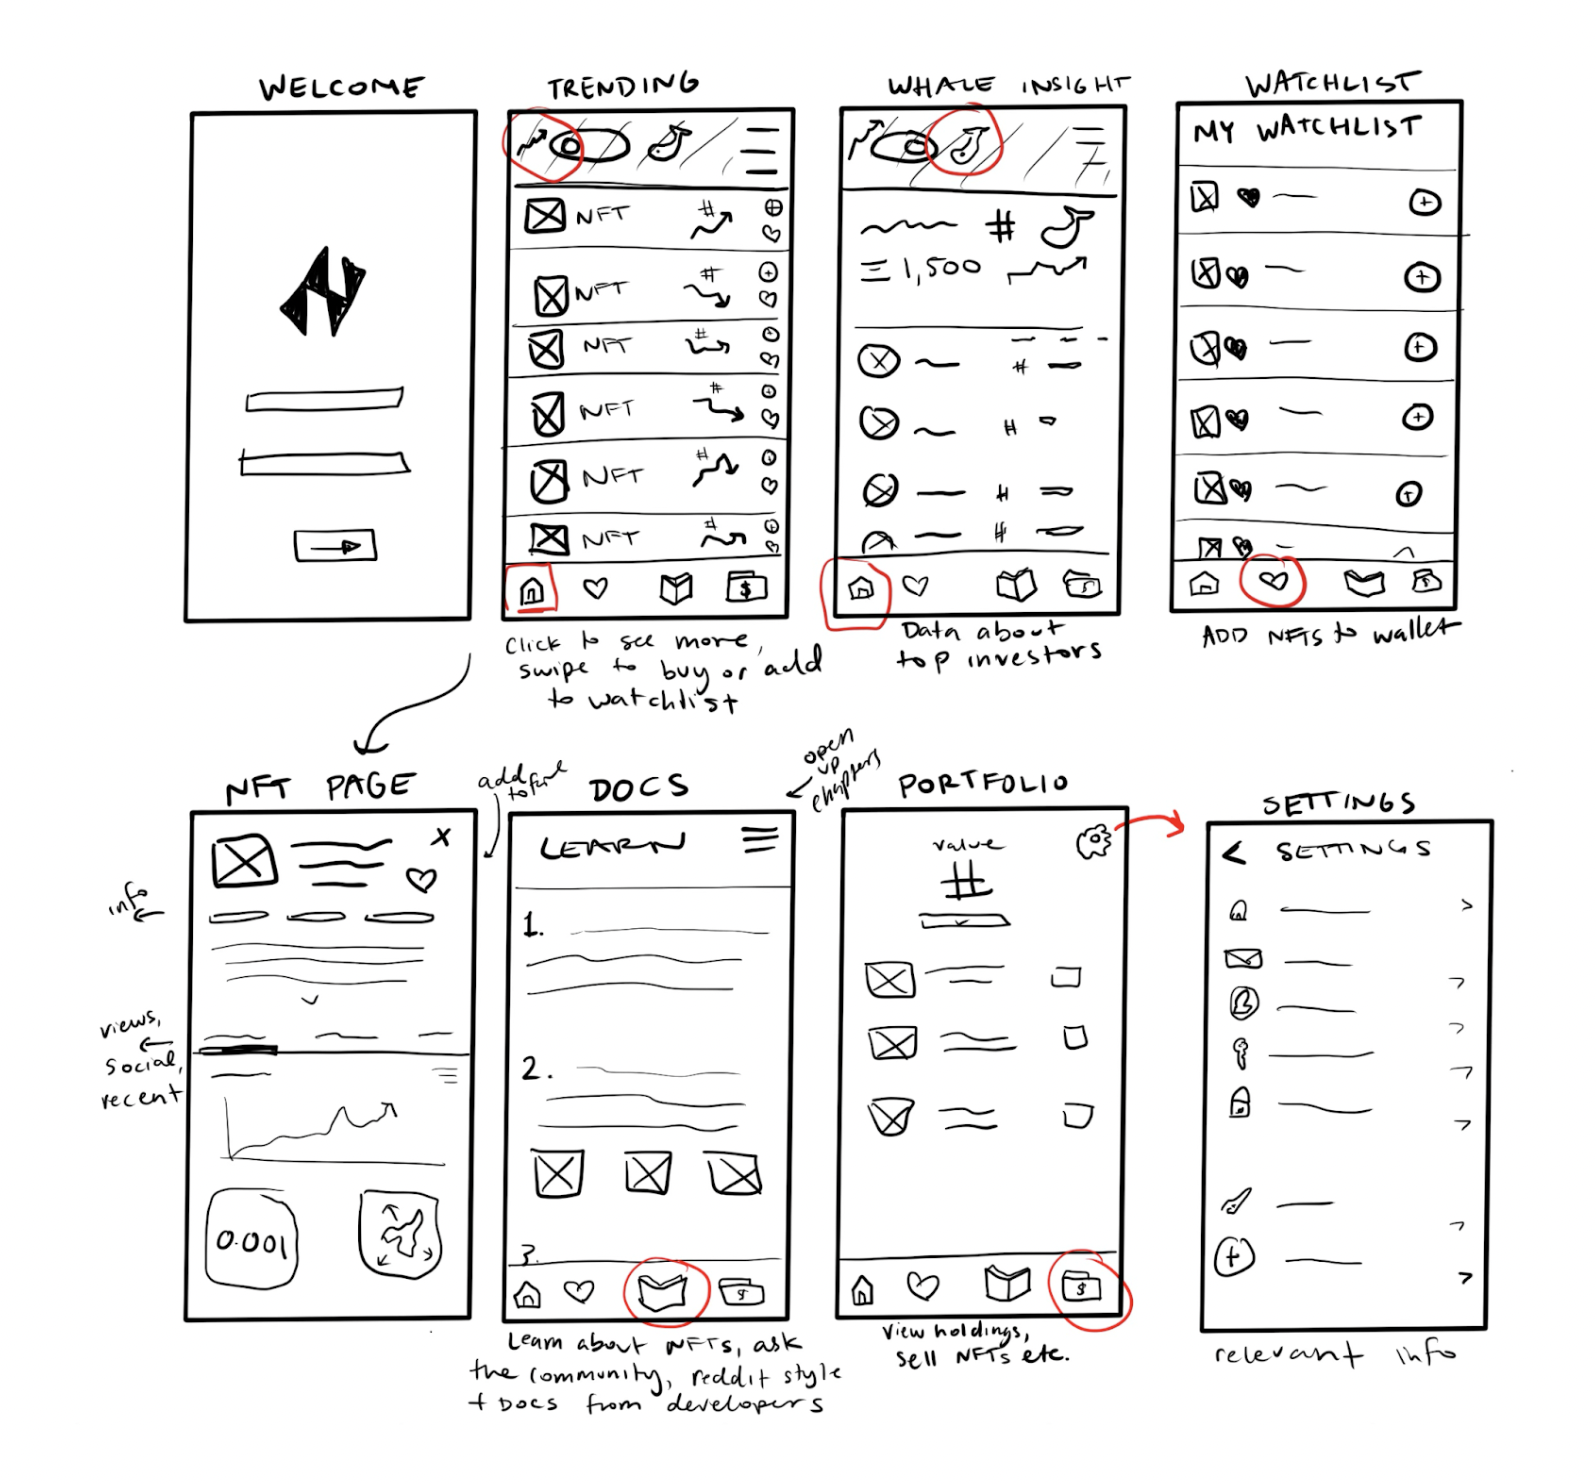 WELCOME
TRENDING
NFT #
NFT #
NFT #
NFT #
NFT #
NFT #
Click to see more,
swipe to buy or add
to watchlist
WHALE INSIGHT
#
1,500
#
#
#
#
Data about
top investors
WATCHLIST
MY WATCHLIST
ADD NFTs to wallet
NFT PAGE
X
info
views,
social,
recent
0.001
add
to fave
DOCS
open
up
chapters
LEARN
1.
2.
3.
Learn about NFTs, ask
the community, reddit style
+ DOCS from developers
PORTFOLIO
value
#
$
View holdings,
sell NFTs etc.
SETTINGS
< SETTINGS
relevant info